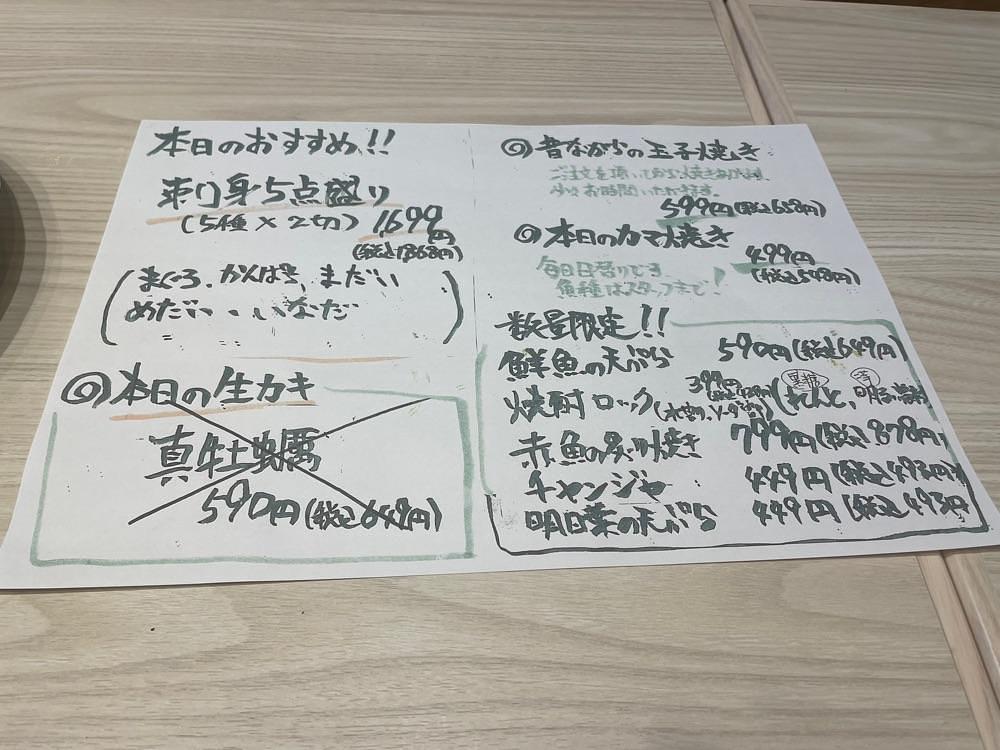 本日のおすすめ!!
刺身5点盛り
(5種×2切) 1,699円
(税込1868円)
(まぐろ、かんぱち、まだい
めだい、いなだ)
◎本日の生カキ
真牡蠣
590円(税込649円)
◎昔ながらの玉子焼き
ご注文を頂いてから焼きあげます
少々お時間いただきます。
599円(税込658円)
◎本日のカマ焼き
499円
(税込548円)
毎日日替りです
魚種はスタッフまで!
数量限定!!
鮮魚の天ぷら 590円(税込649円)
焼酎ロック(水割り、ソーダ割り) 399円
黒糖 れんと、
赤魚の炙り焼き 799円(税込878円)
チャンジャ 449円(税込493円)
明日葉の天ぷら 449円(税込493円)